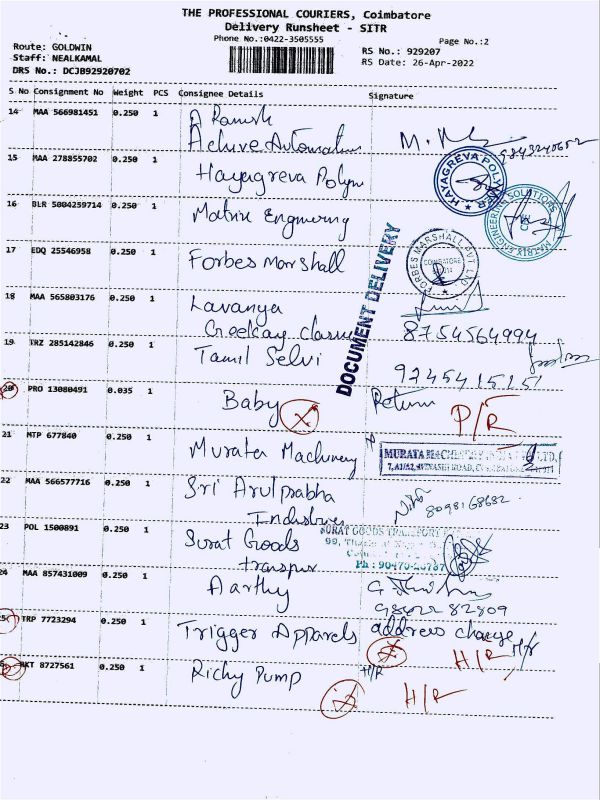 THE PROFESSIONAL COURIERS, Coimbatore
Delivery Runsheet - SITR
Phone No.:0422-3505555
Page No.:2
Route: GOLDWIN
Staff: NEALKAMAL
DRS No.: DCJB92920702
RS No.: 929207
RS Date: 26-Apr-2022
S No Consignment No Weight PCS Consignee Details Signature
14 MAA 566981451 0.250 1 A Ramesh
Achive Automation
9843240652
15 MAA 278855702 0.250 1 Hayagreva Polym
HAYAGREVA POLYMER
16 BLR 5004259714 0.250 1 Matrix Engnering
MATRIX ENGINEERING SOLUTIONS
17 EDQ 25546958 0.250 1 Forbes Marshall
FORBES MARSHALL PVT LTD
COIMBATORE
DOCUMENT DELIVERY
18 MAA 565803176 0.250 1 Lavanya
8754564994
19 TRZ 285142846 0.250 1 Tamil Selvi
20 PRO 13080491 0.035 1 Baby Return P/R
21 MTP 677840 0.250 1 Murata Machinery
MURATA MACHINERY INDIA PVT LTD.
7, A1/A2, AVINASHI ROAD, COIMBATORE
22 MAA 566577716 0.250 1 Sri Arulprabha
Industries
8098168682
23 POL 1500891 0.250 1 Surat Goods
transpor
SURAT GOODS TRANSPORT
24 MAA 857431009 0.250 1 Aarthy
98422 82809
25 TRP 7723294 0.250 1 Trigger Apparels address change H/R
H/R
RKT 8727561 0.250 1 Richy Pump H/R
H/R